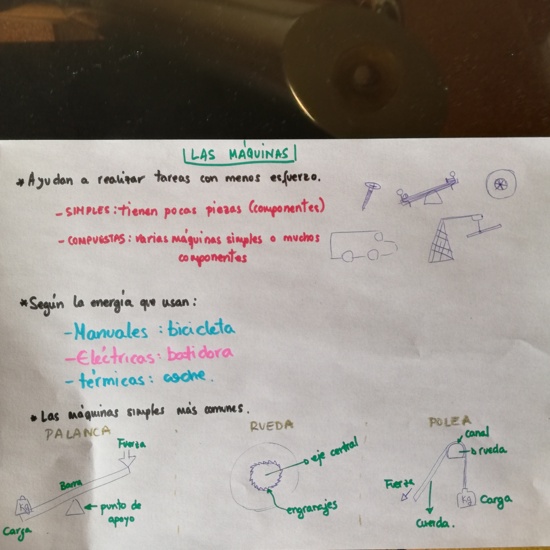 LAS MÁQUINAS
* Ayudan a realizar tareas con menos esfuerzo.
- SIMPLES: tienen pocas piezas (componentes)
- COMPUESTAS: varias máquinas simples o muchos
componentes
* Según la energía que usan:
- Manuales: bicicleta
- Eléctricas: batidora
- térmicas: coche.
• Las máquinas simples más comunes.
PALANCA
Fuerza
Barra
Kg
Carga
punto de
apoyo
RUEDA
eje central
engranajes
POLEA
canal
rueda
Fuerza
Kg
Carga
Cuerda.